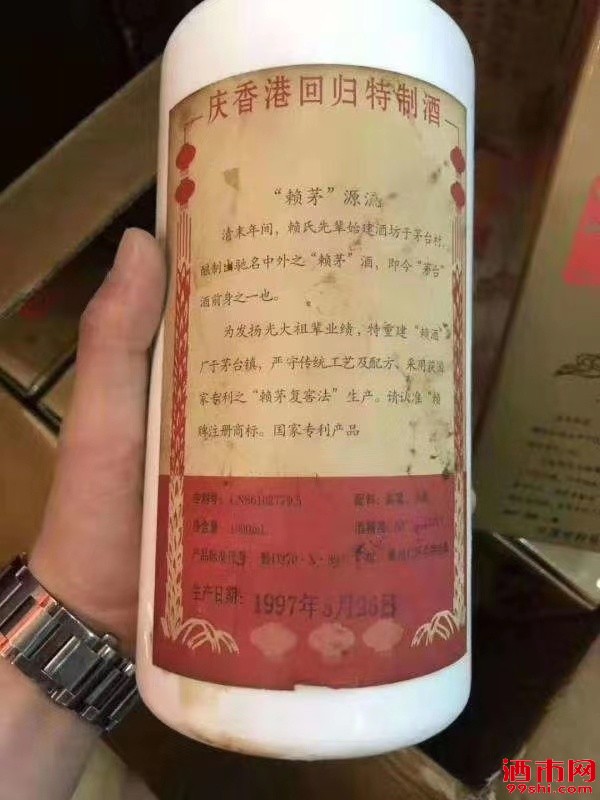 庆香港回归特制酒
“赖茅”源流
清末年间，赖氏先辈始建酒坊于茅台村，
酿制出驰名中外之“赖茅”酒，即今“茅台”
酒前身之一也。
为发扬光大祖辈业绩，特重建“赖酒”
厂于茅台镇，严守传统工艺及配方、采用获国
家专利之“赖茅复窖法”生产。请认准“赖
牌注册商标。国家专利产品
专利号：CN86102779.5
配料：
净含量 1000mL
酒精度
产品标准代号
生产日期：1997年 月26日
酒市网
99shi.com